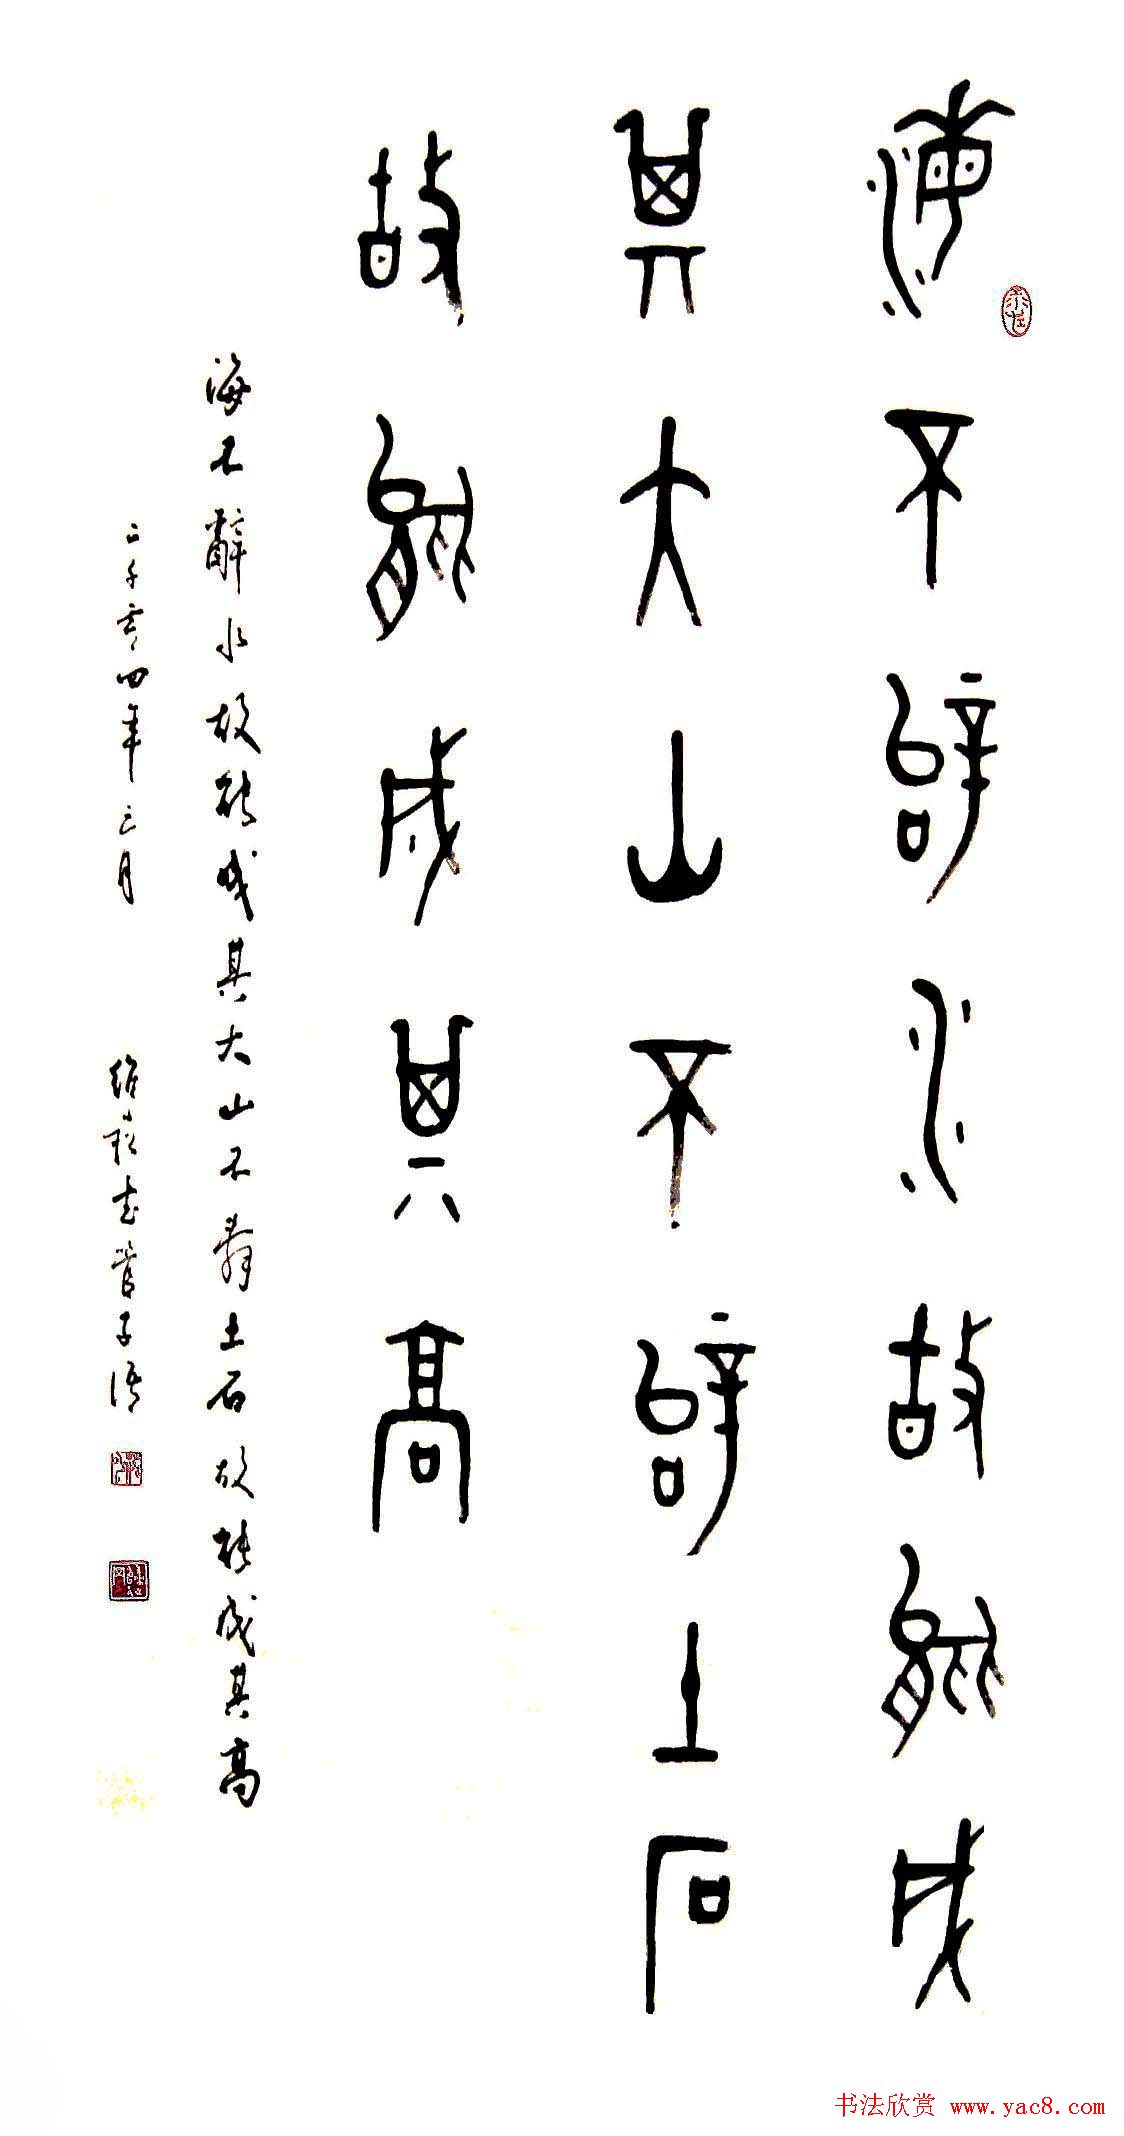 海不辭水故能成
其大山不辭土石
故能成其高
海不辭水故能成其大山不辭土石故能成其高
二千零四年三月
管子語
书法欣赏 www.yac8.com